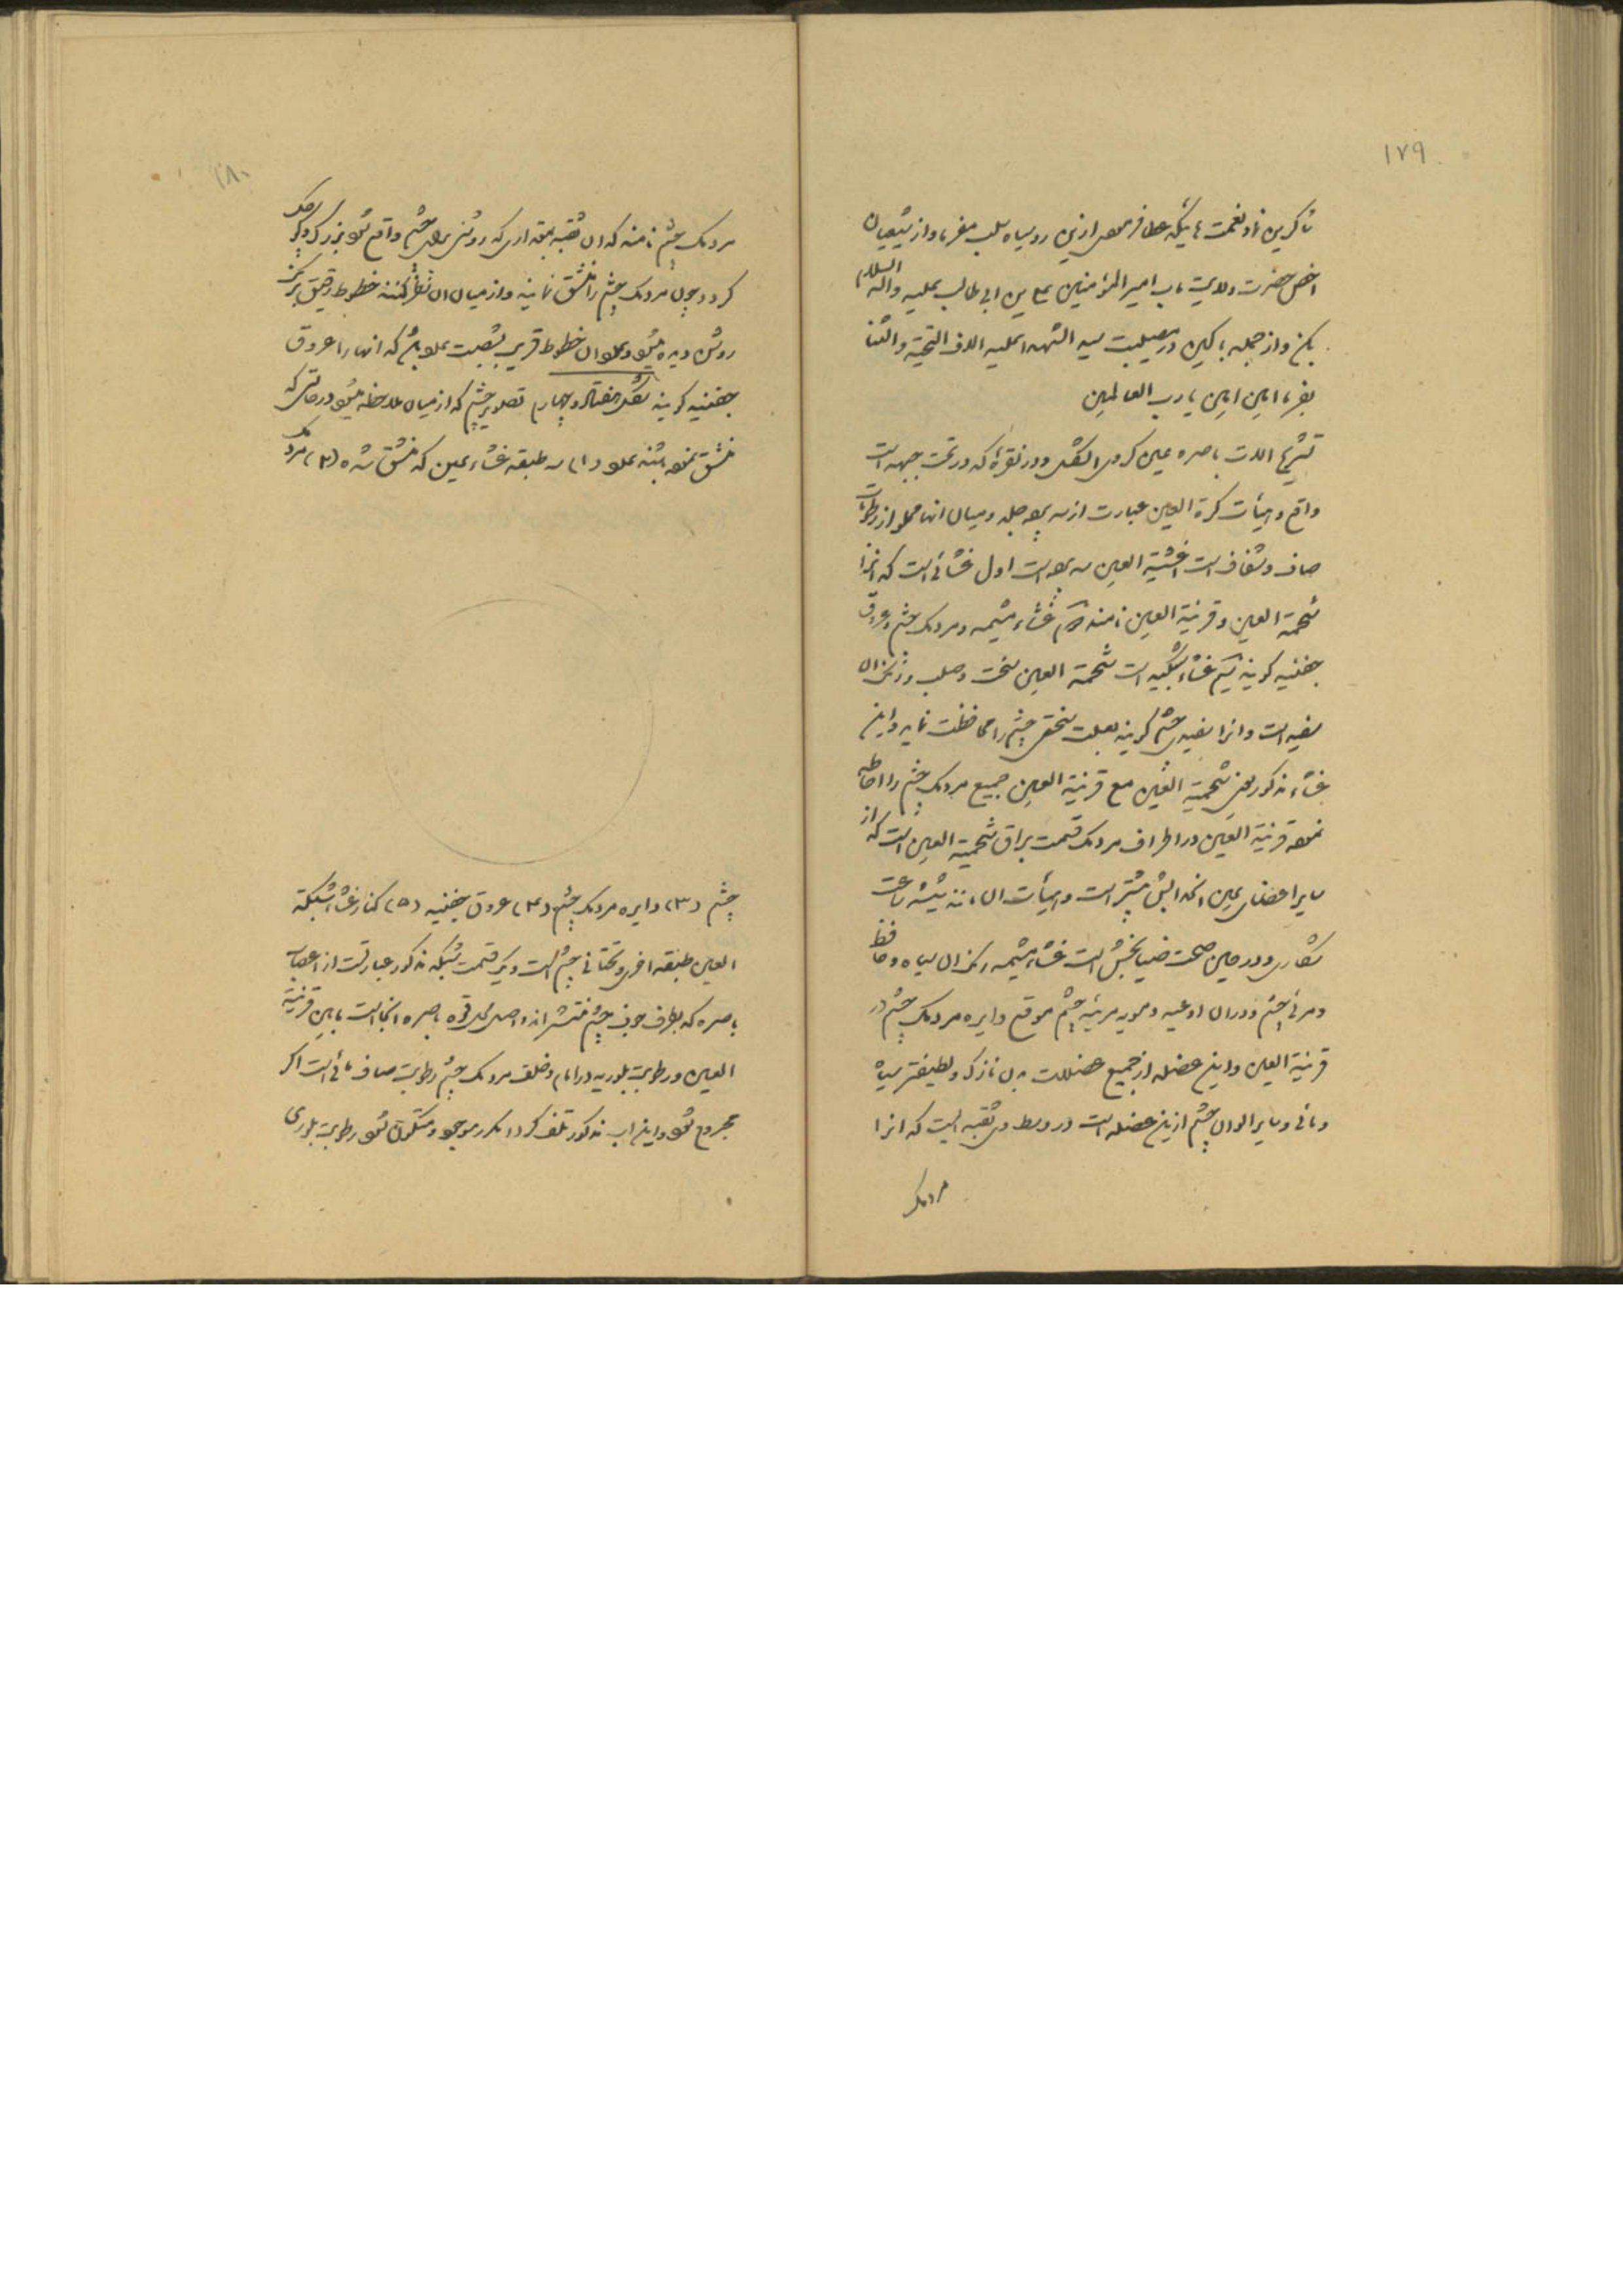 ١٧٩
شاکرین نما و نعمت هائیکه عطا فرموده‌ ازین روسیاه سلب مفرما و از شیعیان
اخص حضرت ولایت مآب امیر المؤمنین علی بن ابی طالب علیه واله السلام
بکن و از جمله باکین در مصیبت سید الشهدا علیه الاف التحیة و الثنا
بفرما امین امین یا رب العالمین
تشریح الات باصره عین کروی الشکل و در نقره که در تحت جبهه است
واقع و هیأت کرة العین عبارت از سه جلد و میان انها مملو از رطوبات
صاف و شفاف است اغشیة العین سه است اول غشائی است که انرا
شحمة العین و قرنیة العین نامند دوم غشاء مشیمه و مردمک چشم و عروق
جفنیه گویند سیم غشاء شبکیه است شحمة العین سخت و صلب و رنگ ان
سفید است و انرا سفیدی چشم گویند چشم را محافظت نماید و این
غشاء مذکور یعنی شحمیة العین مع قرنیة العین جمیع مردمک چشم را احاطه
نموده قرنیة العین در اطراف مردمک قسمت براق شحمیة العین است که از
سایر اعضای عین است و هیأت ان مانند شیشه ساعت
و در حین صحت ضیا بخش است غشاء مشیمه رنگ ان سیاه و حافظ
و مرئی چشم و در ان اوعیه چشم موقع دایره مردمک چشم در
قرنیة العین و این عضله از جمیع عضلات بدن نازک و لطیفتر سیاه
و مائی و سایر الوان چشم ازین عضله است در وسط وی ثقبه ایست که انرا
مردمک
١٨٠
مردمک چشم نامند که ان ثقبه بمقداری که روشنی برای چشم واقع شود بزرگ و کوچک
گردد چون مردمک چشم را منشق نمایند و از میان ان نظر کنند خطوط رقیق
روشن دیده میشود و عدد ان خطوط قریب بشصت عدد باشد که انها را عروق
جفنیه گویند شکل هفتاد و چهارم تصویر چشم که از میان ملاحظه میشود در حالتی که
منشق نموده باشند عدد (۱) سه طبقه غشاء عین که منشق شده (۲) مردمک
چشم (۳) دایره مردمک چشم (۴) عروق جفنیه (۵) کنار غشاء شبکة
العین طبقه اخری و تحتانی چشم است و یک قسمت شبکه مذکور عبارتست از اعصاب
باصره که بطرف جوف چشم منتشر اند و اصل محل قوه باصره انجا است مابین قرنیة
العین و رطوبت بلوریه در امام و خلف مردمک چشم رطوبت صاف مائی است اگر
مجروح شود و این اب مذکور تلف گردد مکرر موجود و متکون شود رطوبت بلوری